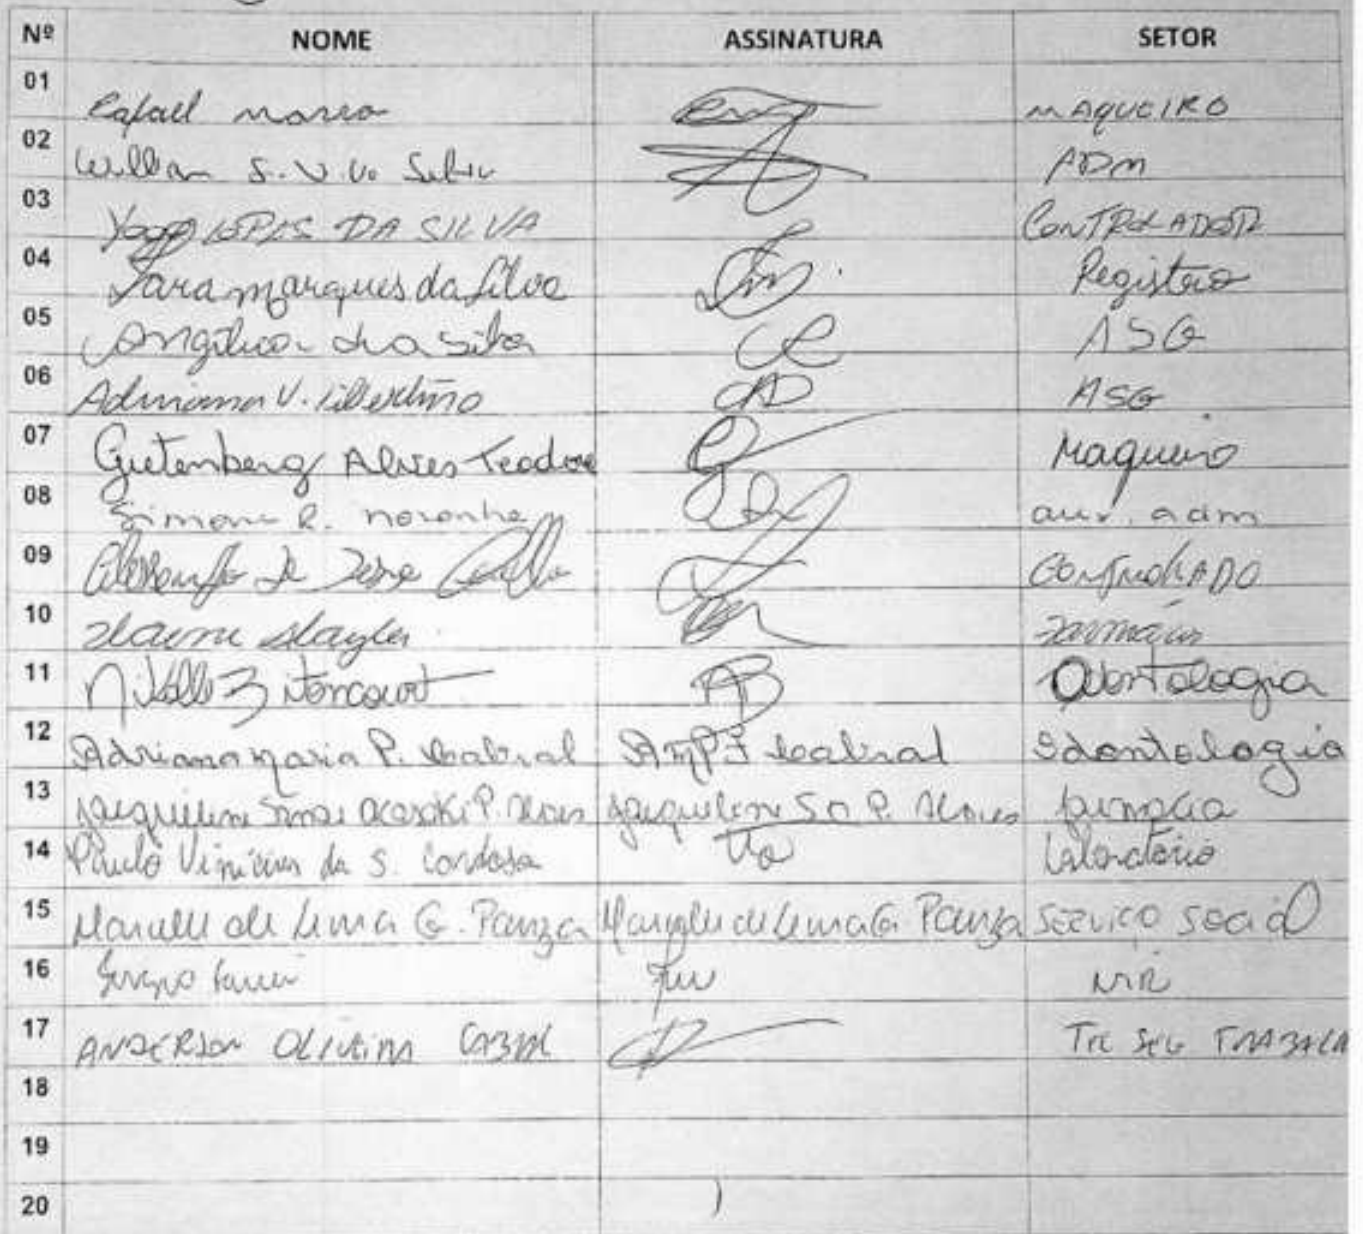 Nº NOME ASSINATURA SETOR
01 Rafael maqueiro
02 Willian S. V. V. Silva ADM
03 LOPES DA SILVA CONTROLADOR
04 Yara marques da Silva Registro
05 Angélica da Silva ASG
06 Adriana V. Libertino ASG
07 Gutenberg Alves Teodoro Maqueiro
08 Simone R. noronha aux. adm
09 CONTROLADO
10 farmácia
11 Nikolle Bitencourt Odontologia
12 Adriana Maria P. Cabral Cabral Odontologia
13 Jaqueline P. Alves Jaqueline S O P. Alves farmacia
14 Paulo Vinicius da S. Cardoso Laboratório
15 Marcelle de Lima G. Panza Marcelle de Lima G. Panza SERVIÇO SOCIAL
16 Sergio NIR
17 ANDERSON OLIVEIRA CABRAL TEC SEG TRABALH
18
19
20